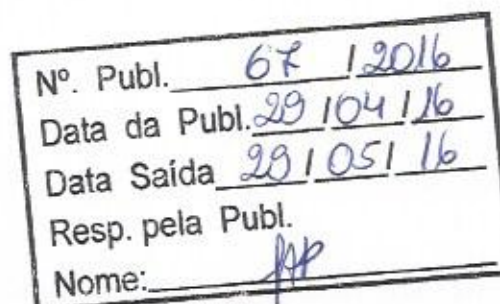 Nº. Publ. 67 / 2016
Data da Publ. 29 / 04 / 16
Data Saída 29 / 05 / 16
Resp. pela Publ.
Nome: